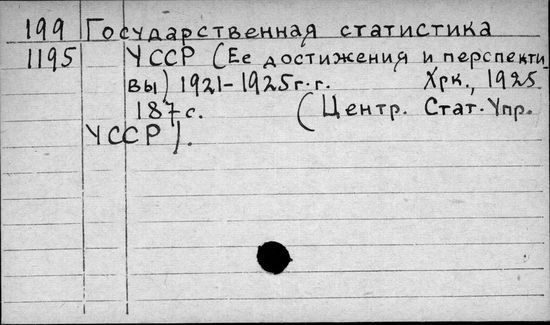 199 Государственная статистика
1195 УССР (Ее достижения и перспекти-
вы) 1921-1925г.г. Хрк., 1925.
187с. (Центр. Стат. Упр.
УССР).